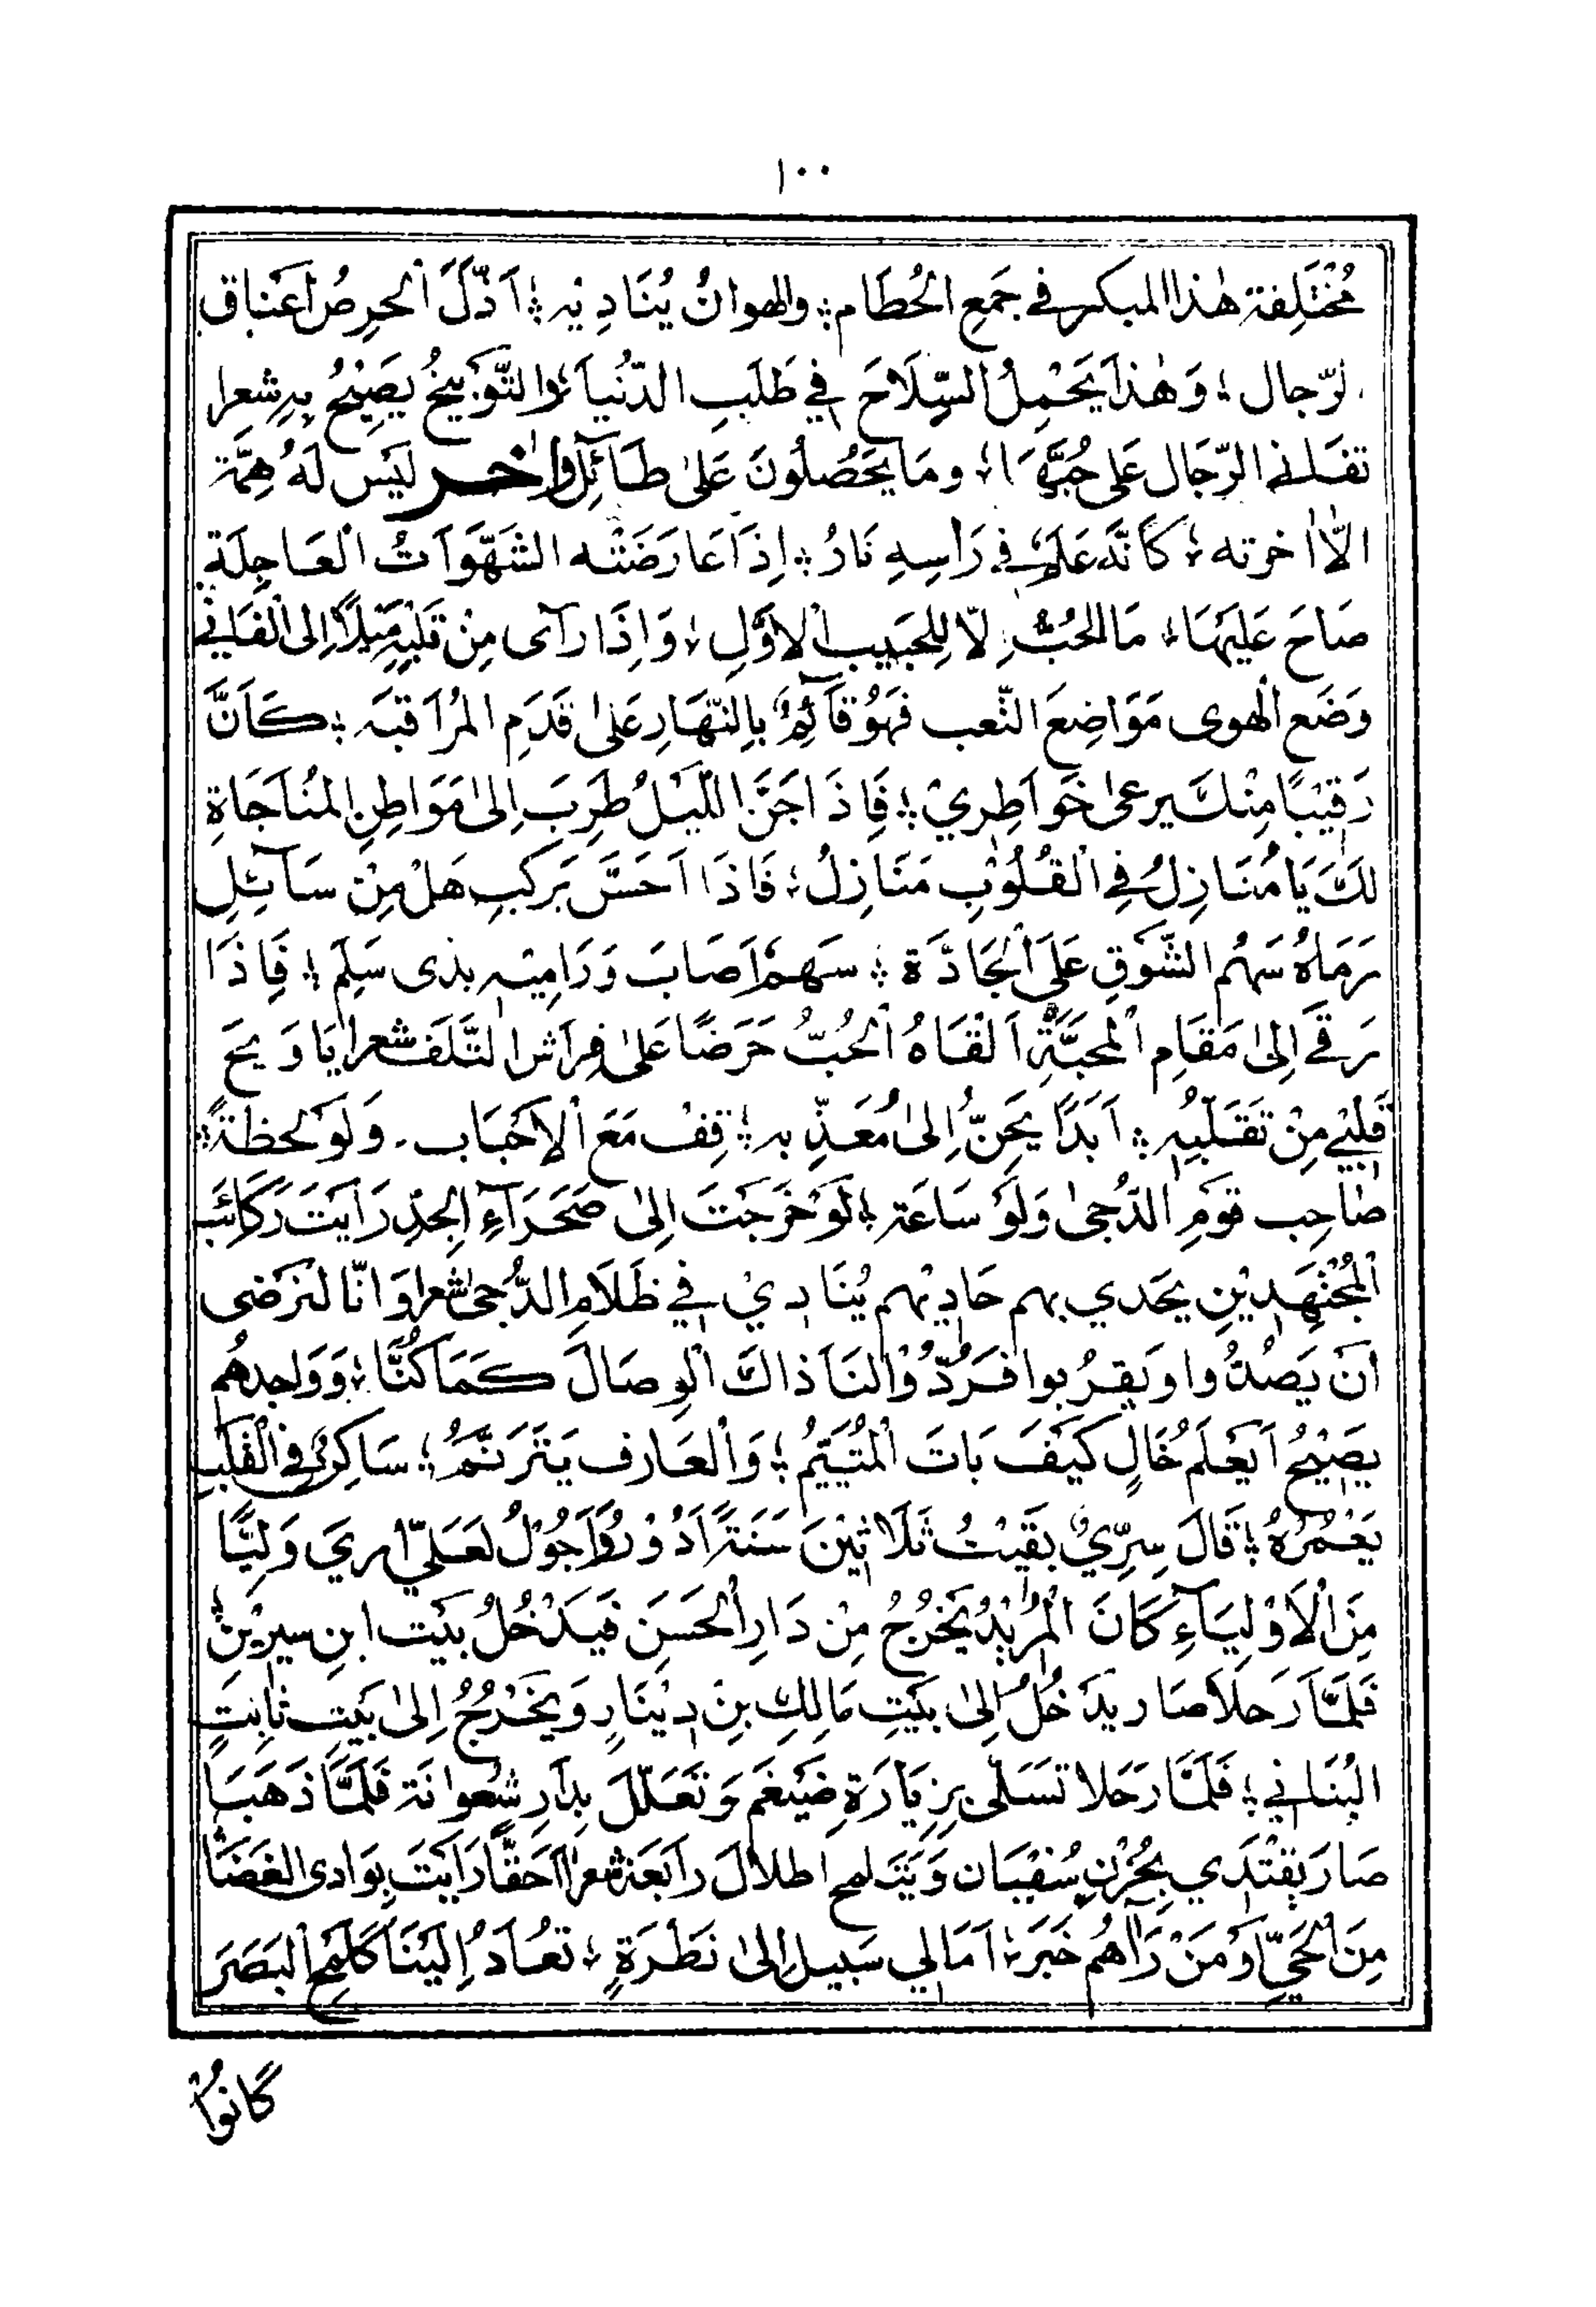 ١٠٠
مُخْتَلِفة هٰذا المبكر في جَمَعِ الحُطَام ؛ والهوانُ يُنَادِيْهِ ؛ اَذَّلَ اَلحِرصُ اَعْناق
لرّجال ؛ وَهٰذا يَحْمِلُ السِّلَاحَ فِي طَلَبِ الدّنْياَ ؛ وَالتَّوْبِيخُ يَصِيْحُ بِهِ شعرا
تفَانى الرّجَال عَلى حُبِّهَا ؛ ومَا يَحْصُلُونَ عَلىٰ طَآئِلٍ واٰخر لَيْس لَهُ هِمَّة
الّا اٰخرته ؛ كَاَنَّهُ عَلَمٌ فِي رَاسِهِ نَارُ ؛ اِذَا عَارَضَتْه الشَهَّوَاتُ الْعَاجِلَة
صَاحَ عَلَيْهَا ؛ مَا الحُبُّ اِلّا لِلْحَبِيبِ الْاوَّلِ ؛ وَاِذَا رَآى مِنْ قَلْبِهِ مَيْلًا اِلى الْفَانِي
وَضَع الْهوى مَوَاضِعَ التّعب فَهُوَ قَآئِمٌ بِالنّهَارِ عَلىٰ قَدَمِ المُرَاقبَة ؛ كَاَنَّ
رَقِيْبًا مِنْكَ يرعىٰ خَوَاطِرِيْ ؛ فَاِذَا جَنَّ اللَّيْلُ طَرِبَ اِلىٰ مَوَاطِنِ المُنَاجَاةِ
لكَ يَا مُنَازِلُ فِي الْقُلُوْبِ مَنَازِلُ ؛ فَاذَا اَحَسَّ بَركبِ هَلْ مِنْ سَآئِلٍ
رَمَاهُ سَهْمُ الشَّوْقِ عَلَى الْجَادَّة ؛ سَهمٌ اَصَابَ وَرَامِيْهِ بذى سَلَمٍ ؛ فَاِذَا
رَقٰى اِلىٰ مَقَامِ الْمحبَّةِ اَلْقَاهُ الْحُبُّ حَرَضًا عَلىٰ فِرَاشِ التَّلَفِ شعرا يَا وَيحَ
قَلْبِيْ مِنْ تَقَلّبِهِ ؛ اَبَدًا يَحِنُّ اِلىٰ مُعَذّبِهِ ؛ قِفْ مَعَ اْلاَحْبَاب ۔ وَلَوْ لَحظةً ؛
صَاحِب قوْمِ الدُّجىٰ وَلَوْ سَاعَة ؛ لَوْ خَرَجْتَ اِلىٰ صَحَرَآءِ الجِدّ رَايْتَ رَكَائبَ
الْمُجْتَهِدِيْنِ يَحْدي بهم حَادِيْهم يُنَادِيْ فِي ظَلَامِ الدُّجىٰ شعرا وَانّا لنَرْضى
اَنْ يَصُدُّوا وَيَقرُبوا فَرُدُّوْا لنَا ذاكَ الْوِصَالَ كَمَا كُنَّا ؛ وَوَاجدهُم
يصَيْحُ اَيعْلَم خَالٍ كيْفَ بَاتَ الْمُتَيَّمُ ؛ وَالْعَارف يَتَرَنَّمُ ؛ سَاكِنٌ فِي الْقَلْبِ
يَعْمُرُهُ ؛ قَالَ سِرِّيٌ بَقَيْتُ ثَلَاثِيْنَ سَنَةً اَدُوْرُ وَاَجُوْلُ لعَلّي اَرىٰ وَلِيًّا
مِنَ الْاَوْلِيَآءِ كَانَ الْمُرِيْدُ يَخْرُجُ مِنْ دَارِ الْحَسَنِ فَيَدْخُلُ بَيْت ابنِ سيرِيْن ؛
فَلَمَّا رَحَلَا صَار يَدْخُلُ اِلىٰ بَيْتِ مَالِكِ بنِ دِيْنَارٍ وَيَخْرُجُ اِلىٰ بَيْتِ ثَابِتٍ
البُنَاني ؛ فَلَمَّا رَحَلا تسَلّى بِزِيَارَةِ ضَيْغَم وَتعَلّلَ بِدَارِ شعْوانَة فَلَمَّا ذَهَبَا
صَار يَقْتَدِي بِحُزْنِ سُفْيَان وَيَتَلمح اَطلَالَ رَابَعَة شعرا اَحَقًّا رَايْتَ بِوَادى الغَضَا
مِنَ الْحَيِّ اَوْ مَنْ رَاٰهُم خَبَرَ ؛ اَمَا لي سَبيل اِلىٰ نَظْرَةٍ ؛ تعُادُ اِلَيْنَا كَلَمْحِ الْبَصَرَ
كَانوُا